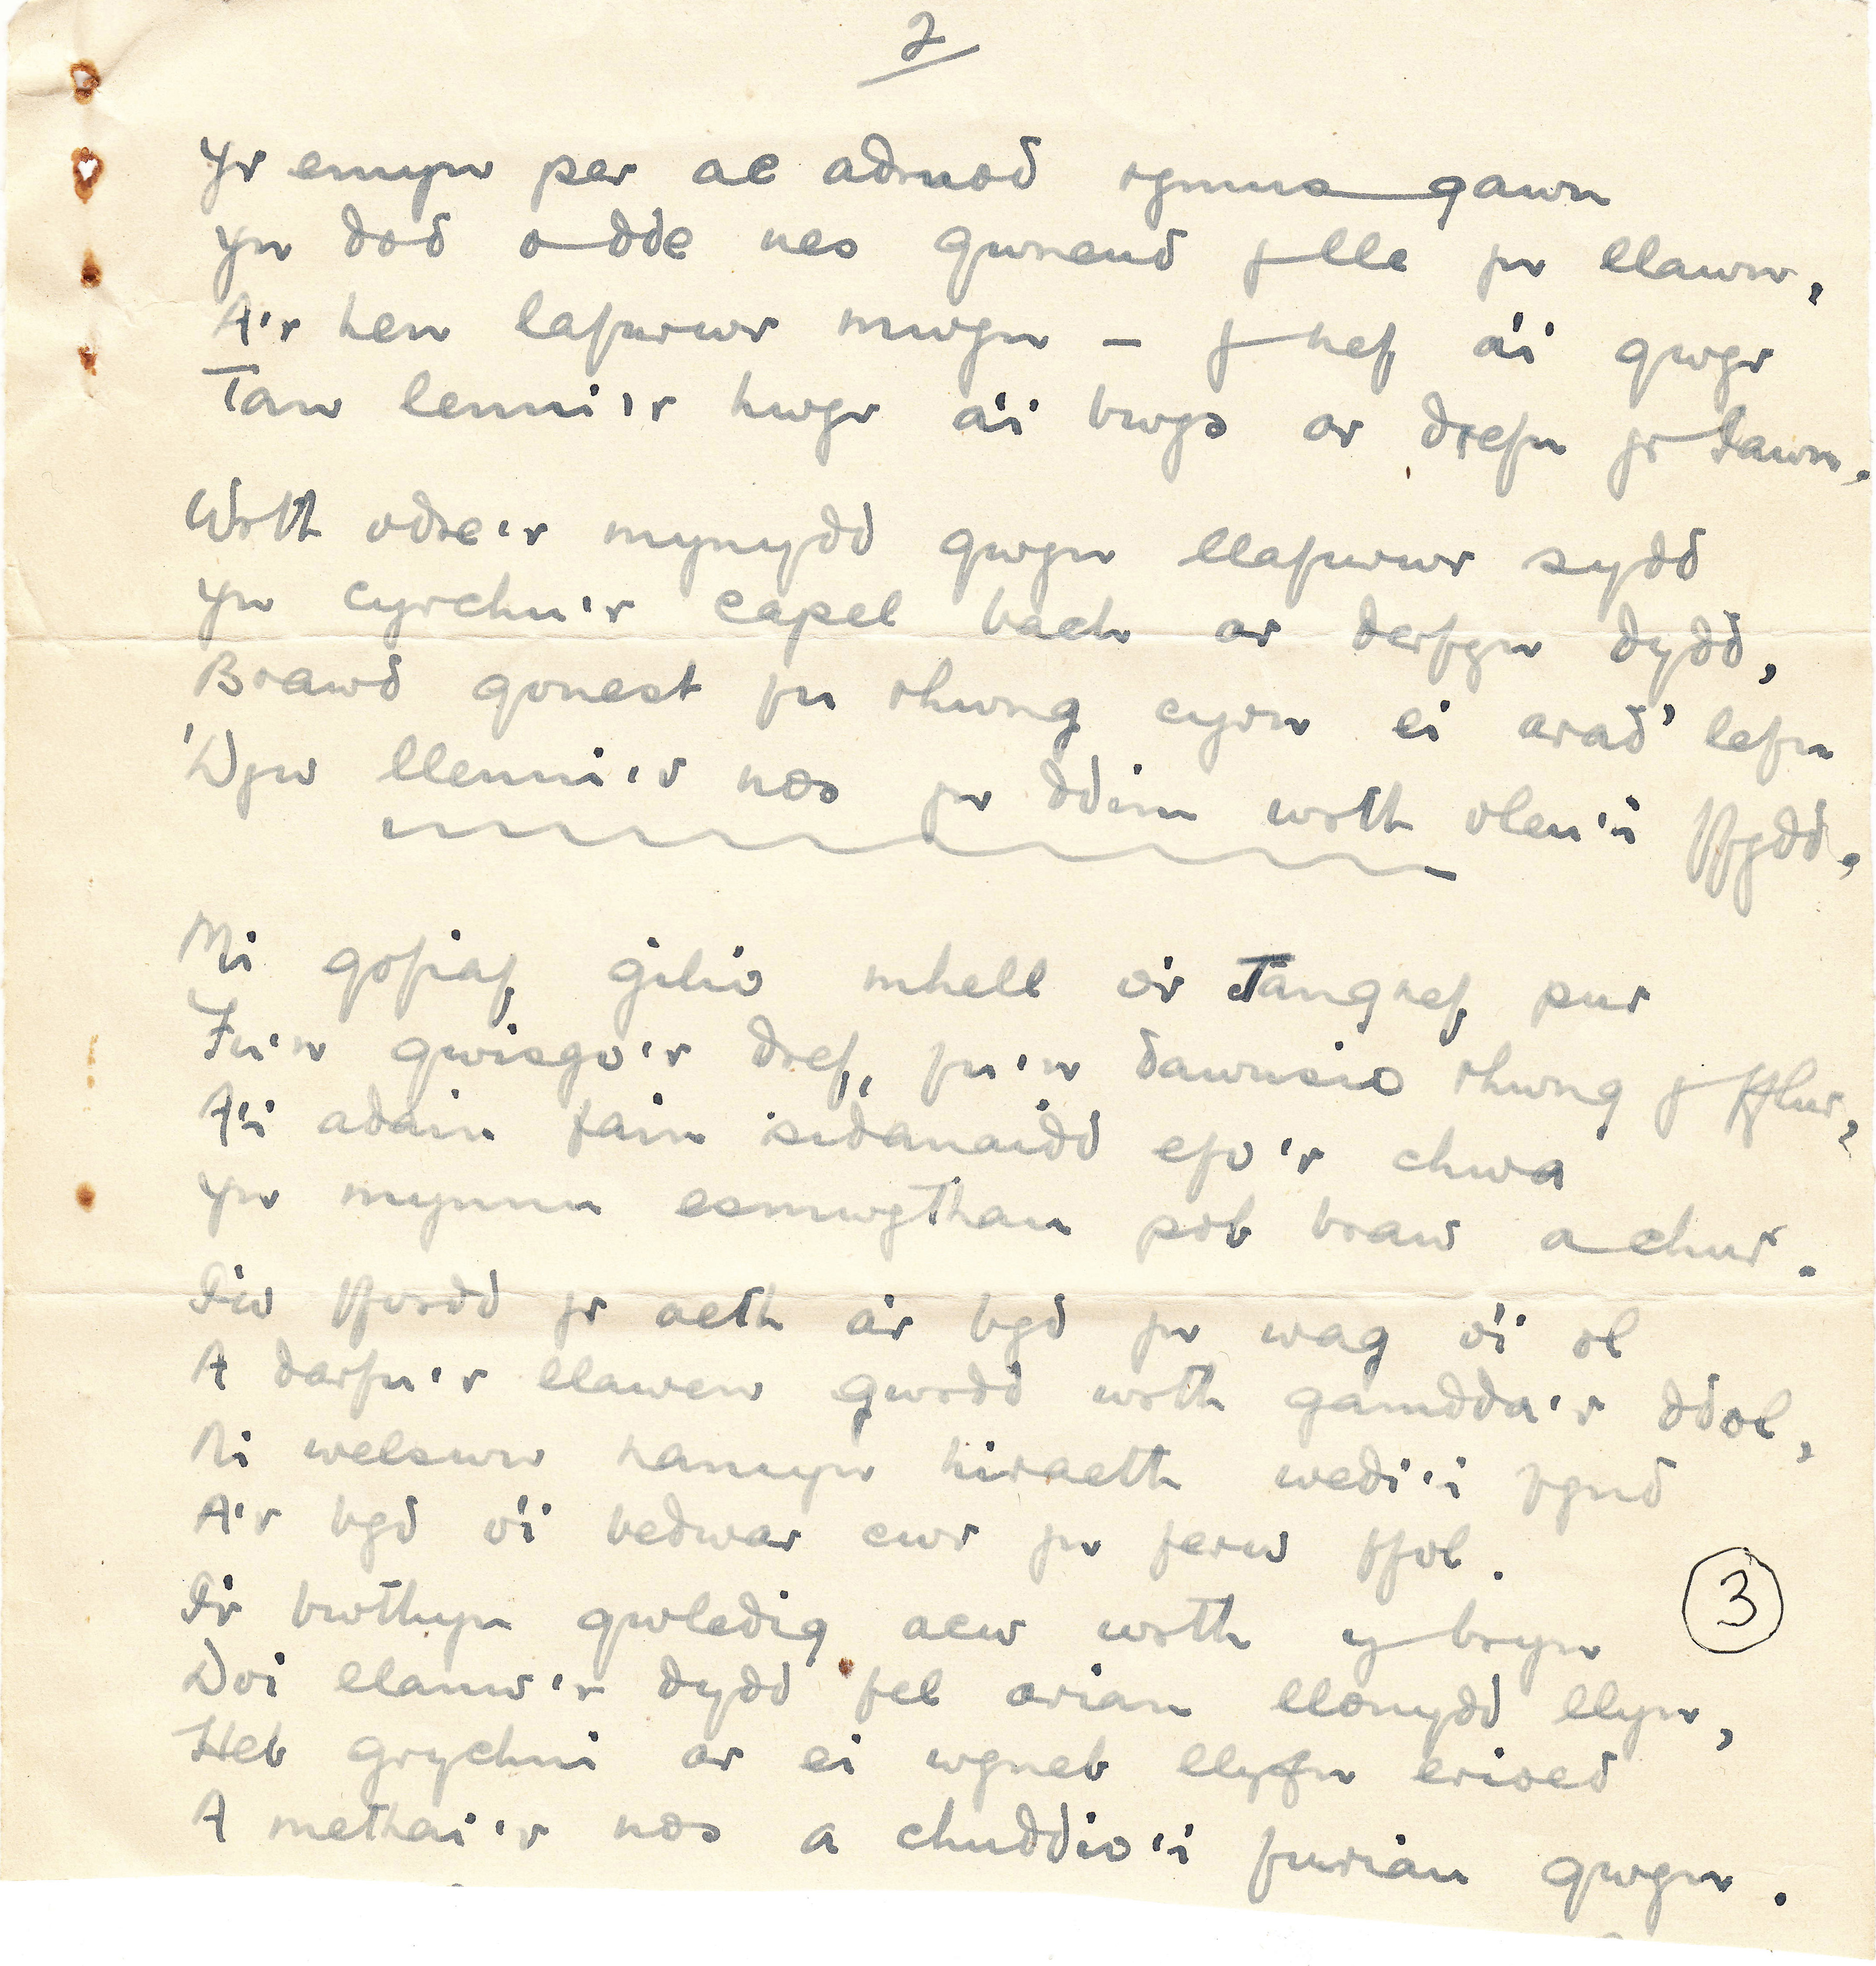 2
Yr emyn per ac adnod rymus gawn
Yn dod o dde nes gwneud y lle yn llawn,
A'r hen lafurwr mwyn – y nef a'i gwyr
Tan lenni'r hwyr a'i bwys ar drefn yr Iawn.
Wrth odre'r mynydd gwyn llafurwr sydd
Yn cyrchu'r capel bach ar derfyn dydd,
Brawd gonest fu rhwng cyrn ei arad' lefn
'Dyw llenni'r nos yn ddim wrth olau'i ffydd.
Mi gofiaf gilio mhell o'r Tangnef pur
Fu'n gwisgo'r dref, fu'n dawnsio rhwng y fflur,
A'i adain fain sidanaidd efo'r chwa
Yn mynnu esmwythau pob braw a chur.
I'w ffordd yr aeth a'r byd yn wag o'i ol
A darfu'r llawen gwrdd wrth gamdda'r ddol,
Ni welswn ronyn hiraeth wedi'i fynd
A'r byd o'i bedwar cwr yn ferw ffol.
I'r bwthyn gwledig acw wrth y bryn
Doi llanw'r dydd fel arian llonydd llyn,
Heb grychni ar ei wyneb llyfn erioed
A methai'r nos a chuddio'i furiau gwyn.
3